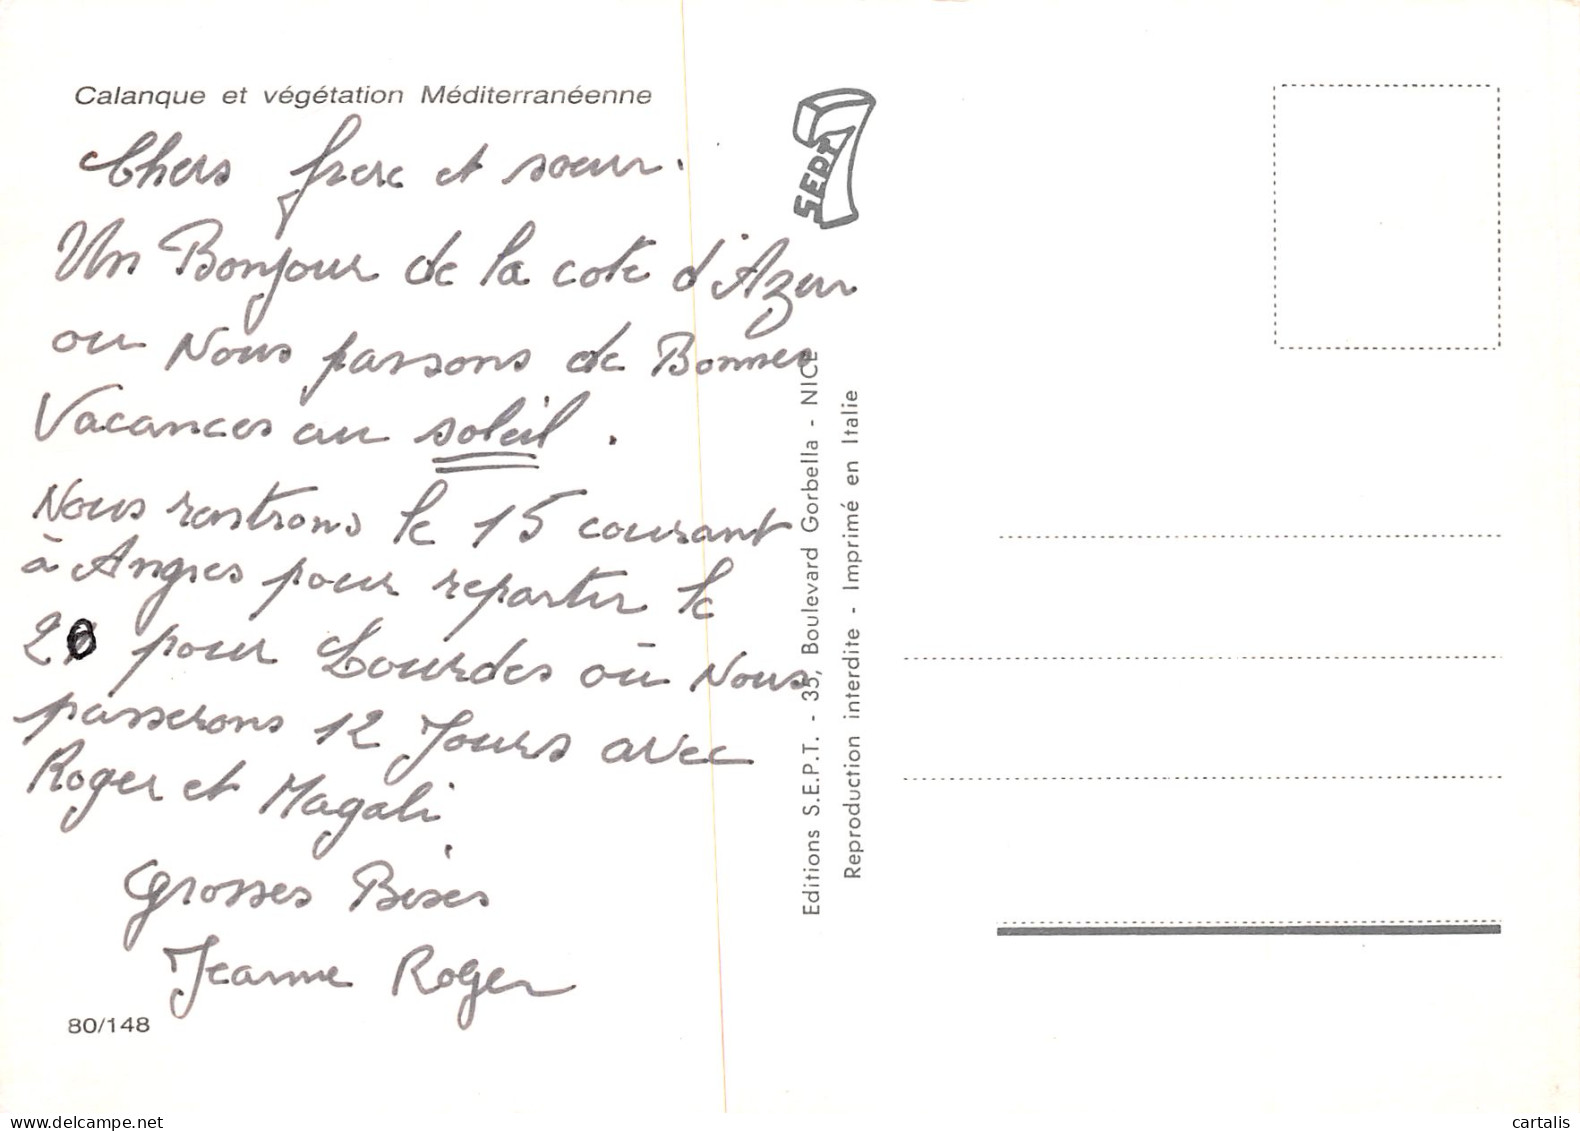 Calanque et végétation Méditerranéenne
Chers frere et soeur.
Un Bonjour de la cote d'Azur
ou Nous passons de Bonnes
Vacances au soleil.
Nous rentrons le 15 courant
à Angres pour repartir le
20 pour Lourdes où Nous
passerons 12 Jours avec
Roger et Magali
Grosses Bises
Jeanne Roger
80/148
SEPT
7
Editions S.E.P.T. - 35, Boulevard Gorbella - NICE
Reproduction interdite - Imprimé en Italie
cartalis